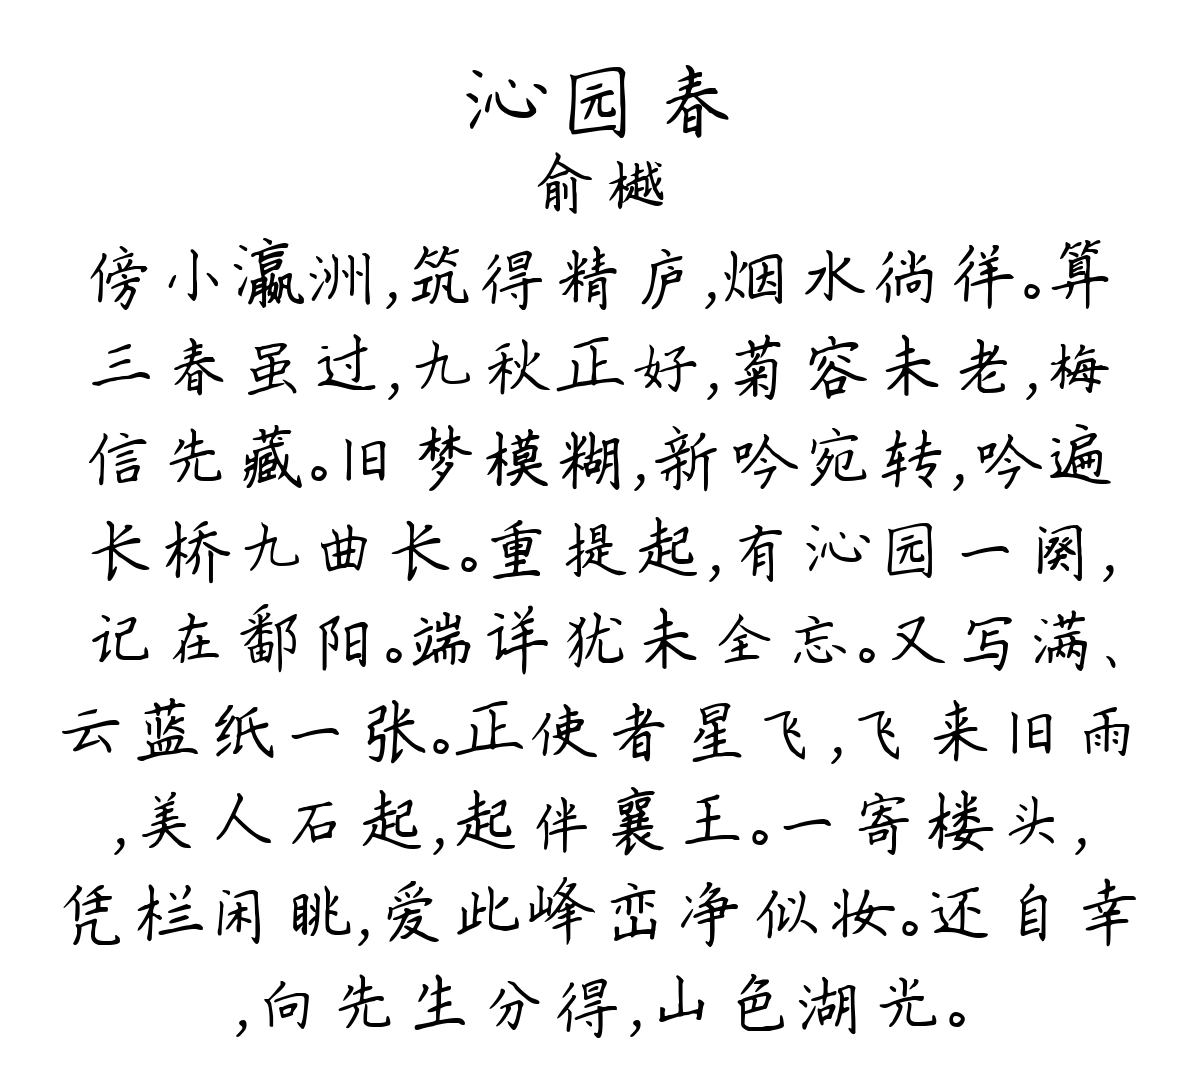 沁园春
俞樾
傍小瀛洲,筑得精庐,烟水徜徉。算
三春虽过,九秋正好,菊容未老,梅
信先藏。旧梦模糊,新吟宛转,吟遍
长桥九曲长。重提起,有沁园一阕,
记在鄱阳。端详犹未全忘。又写满、
云蓝纸一张。正使者星飞,飞来旧雨
,美人石起,起伴襄王。一寄楼头,
凭栏闲眺,爱此峰峦净似妆。还自幸
,向先生分得,山色湖光。